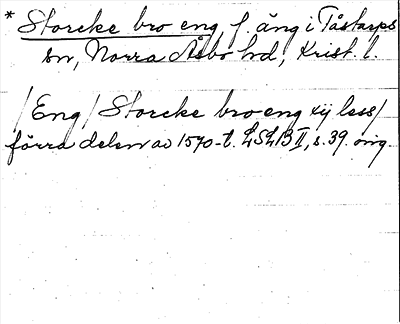 * Storcke bro eng, f. äng i Tåstarps
sn, Norra Åsbo hd, Krist. l.
/Eng/ Storcke bro eng xij less/
förra delen av 1570-t. LSLB II, s. 39. orig.